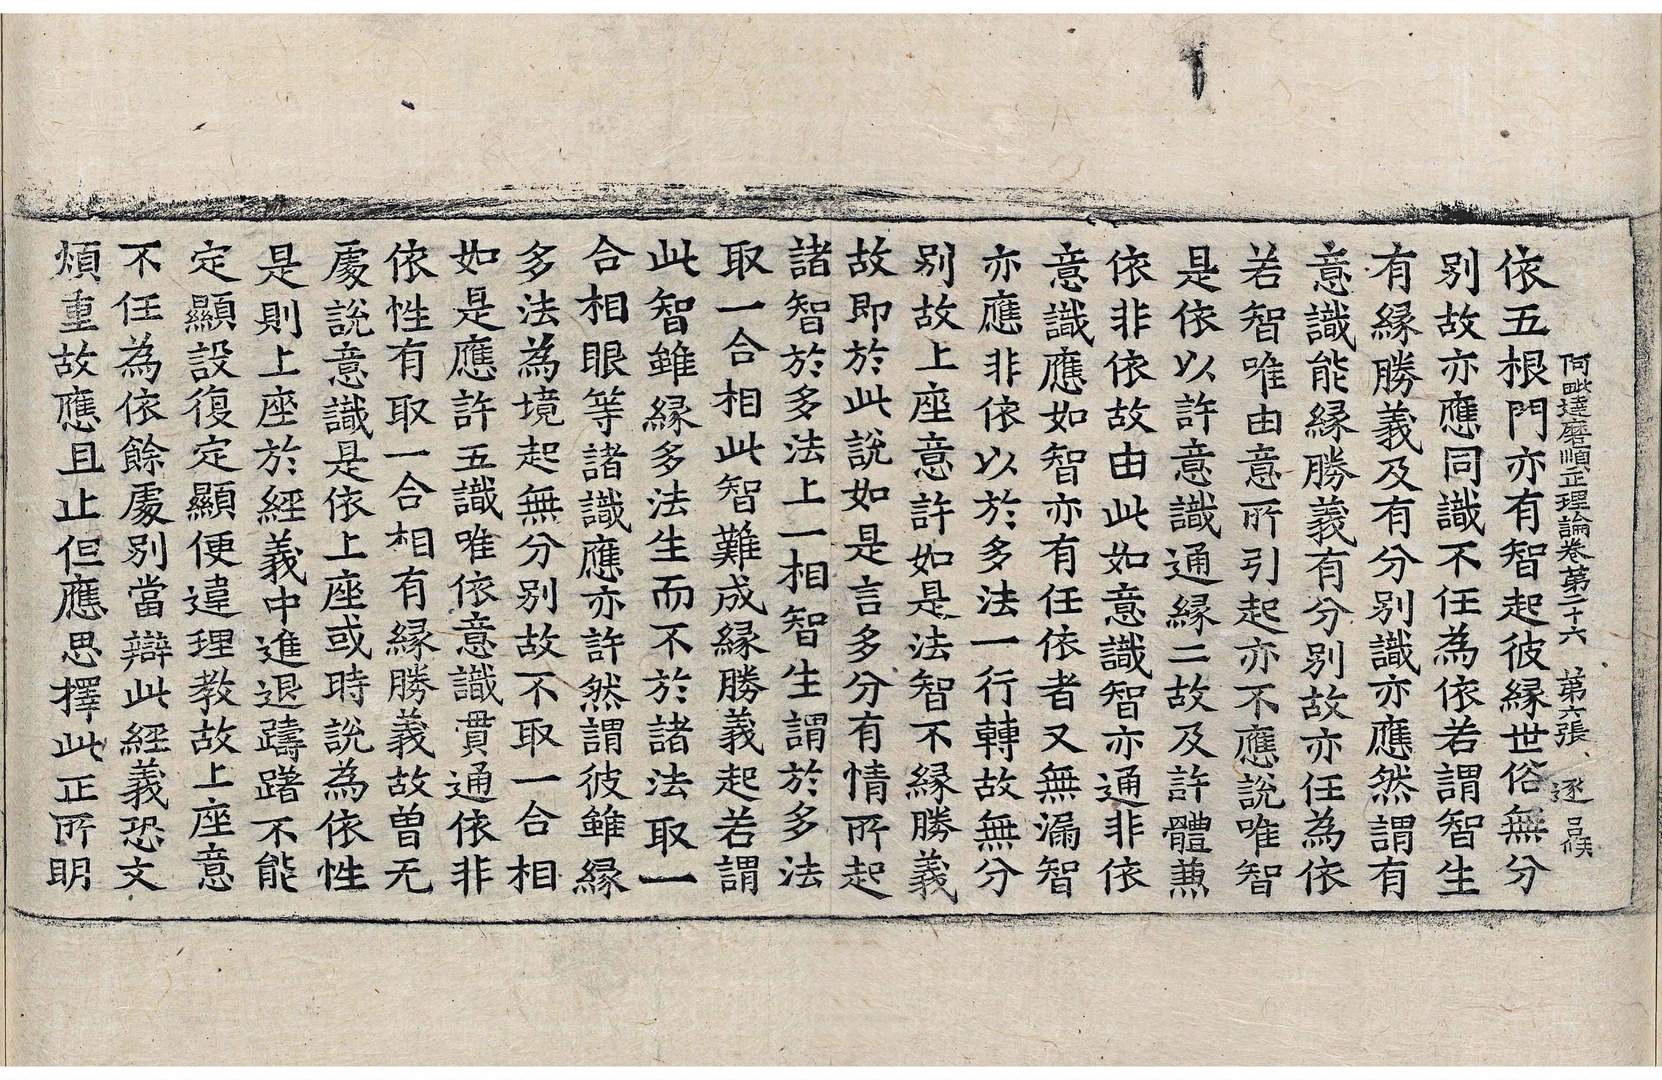 阿毗達磨順正理論卷第二十六　第六張　逐　吕俟
依五根門亦有智起彼緣世俗無分
別故亦應同識不任為依若謂智生
有緣勝義及有分別識亦應然謂有
意識能緣勝義有分別故亦任為依
若智唯由意所引起亦不應說唯智
是依以許意識通緣二故及許體兼
依非依故由此如意識智亦通非依
意識應如智亦有任依者又無漏智
亦應非依以於多法一行轉故無分
別故上座意許如是法智不緣勝義
故即於此說如是言多分有情所起
諸智於多法上一相智生謂於多法
取一合相此智難成緣勝義起若謂
此智雖緣多法生而不於諸法取一
合相眼等諸識應亦許然謂彼雖緣
多法為境起無分別故不取一合相
如是應許五識唯依意識貫通依非
依性有取一合相有緣勝義故曾无
處說意識是依上座或時說為依性
是則上座於經義中進退躊躇不能
定顯設復定顯便違理教故上座意
不任為依餘處別當辯此經義恐文
煩重故應且止但應思擇此正所明